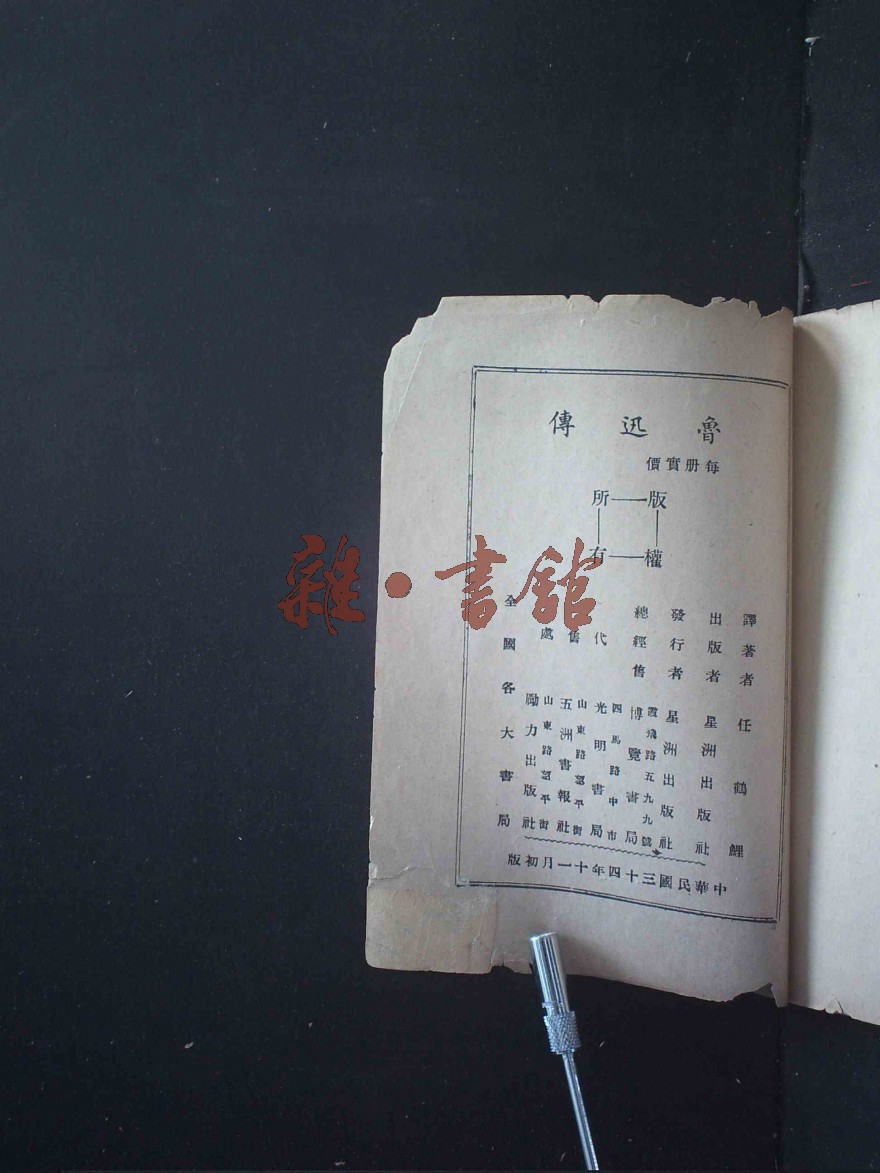 魯迅傳
每册實價
版權所有
譯著者 任鶴鯉
出版者 星洲出版社
發行者 星洲出版社
總經售 博覽書局
霞飛路五九九號
代售處
光明書局
四馬路中市
五洲書報社
山東路望平街
勵力出版社
山東路望平街
全國各大書局
中華民國三十四年十一月初版
雜·書館